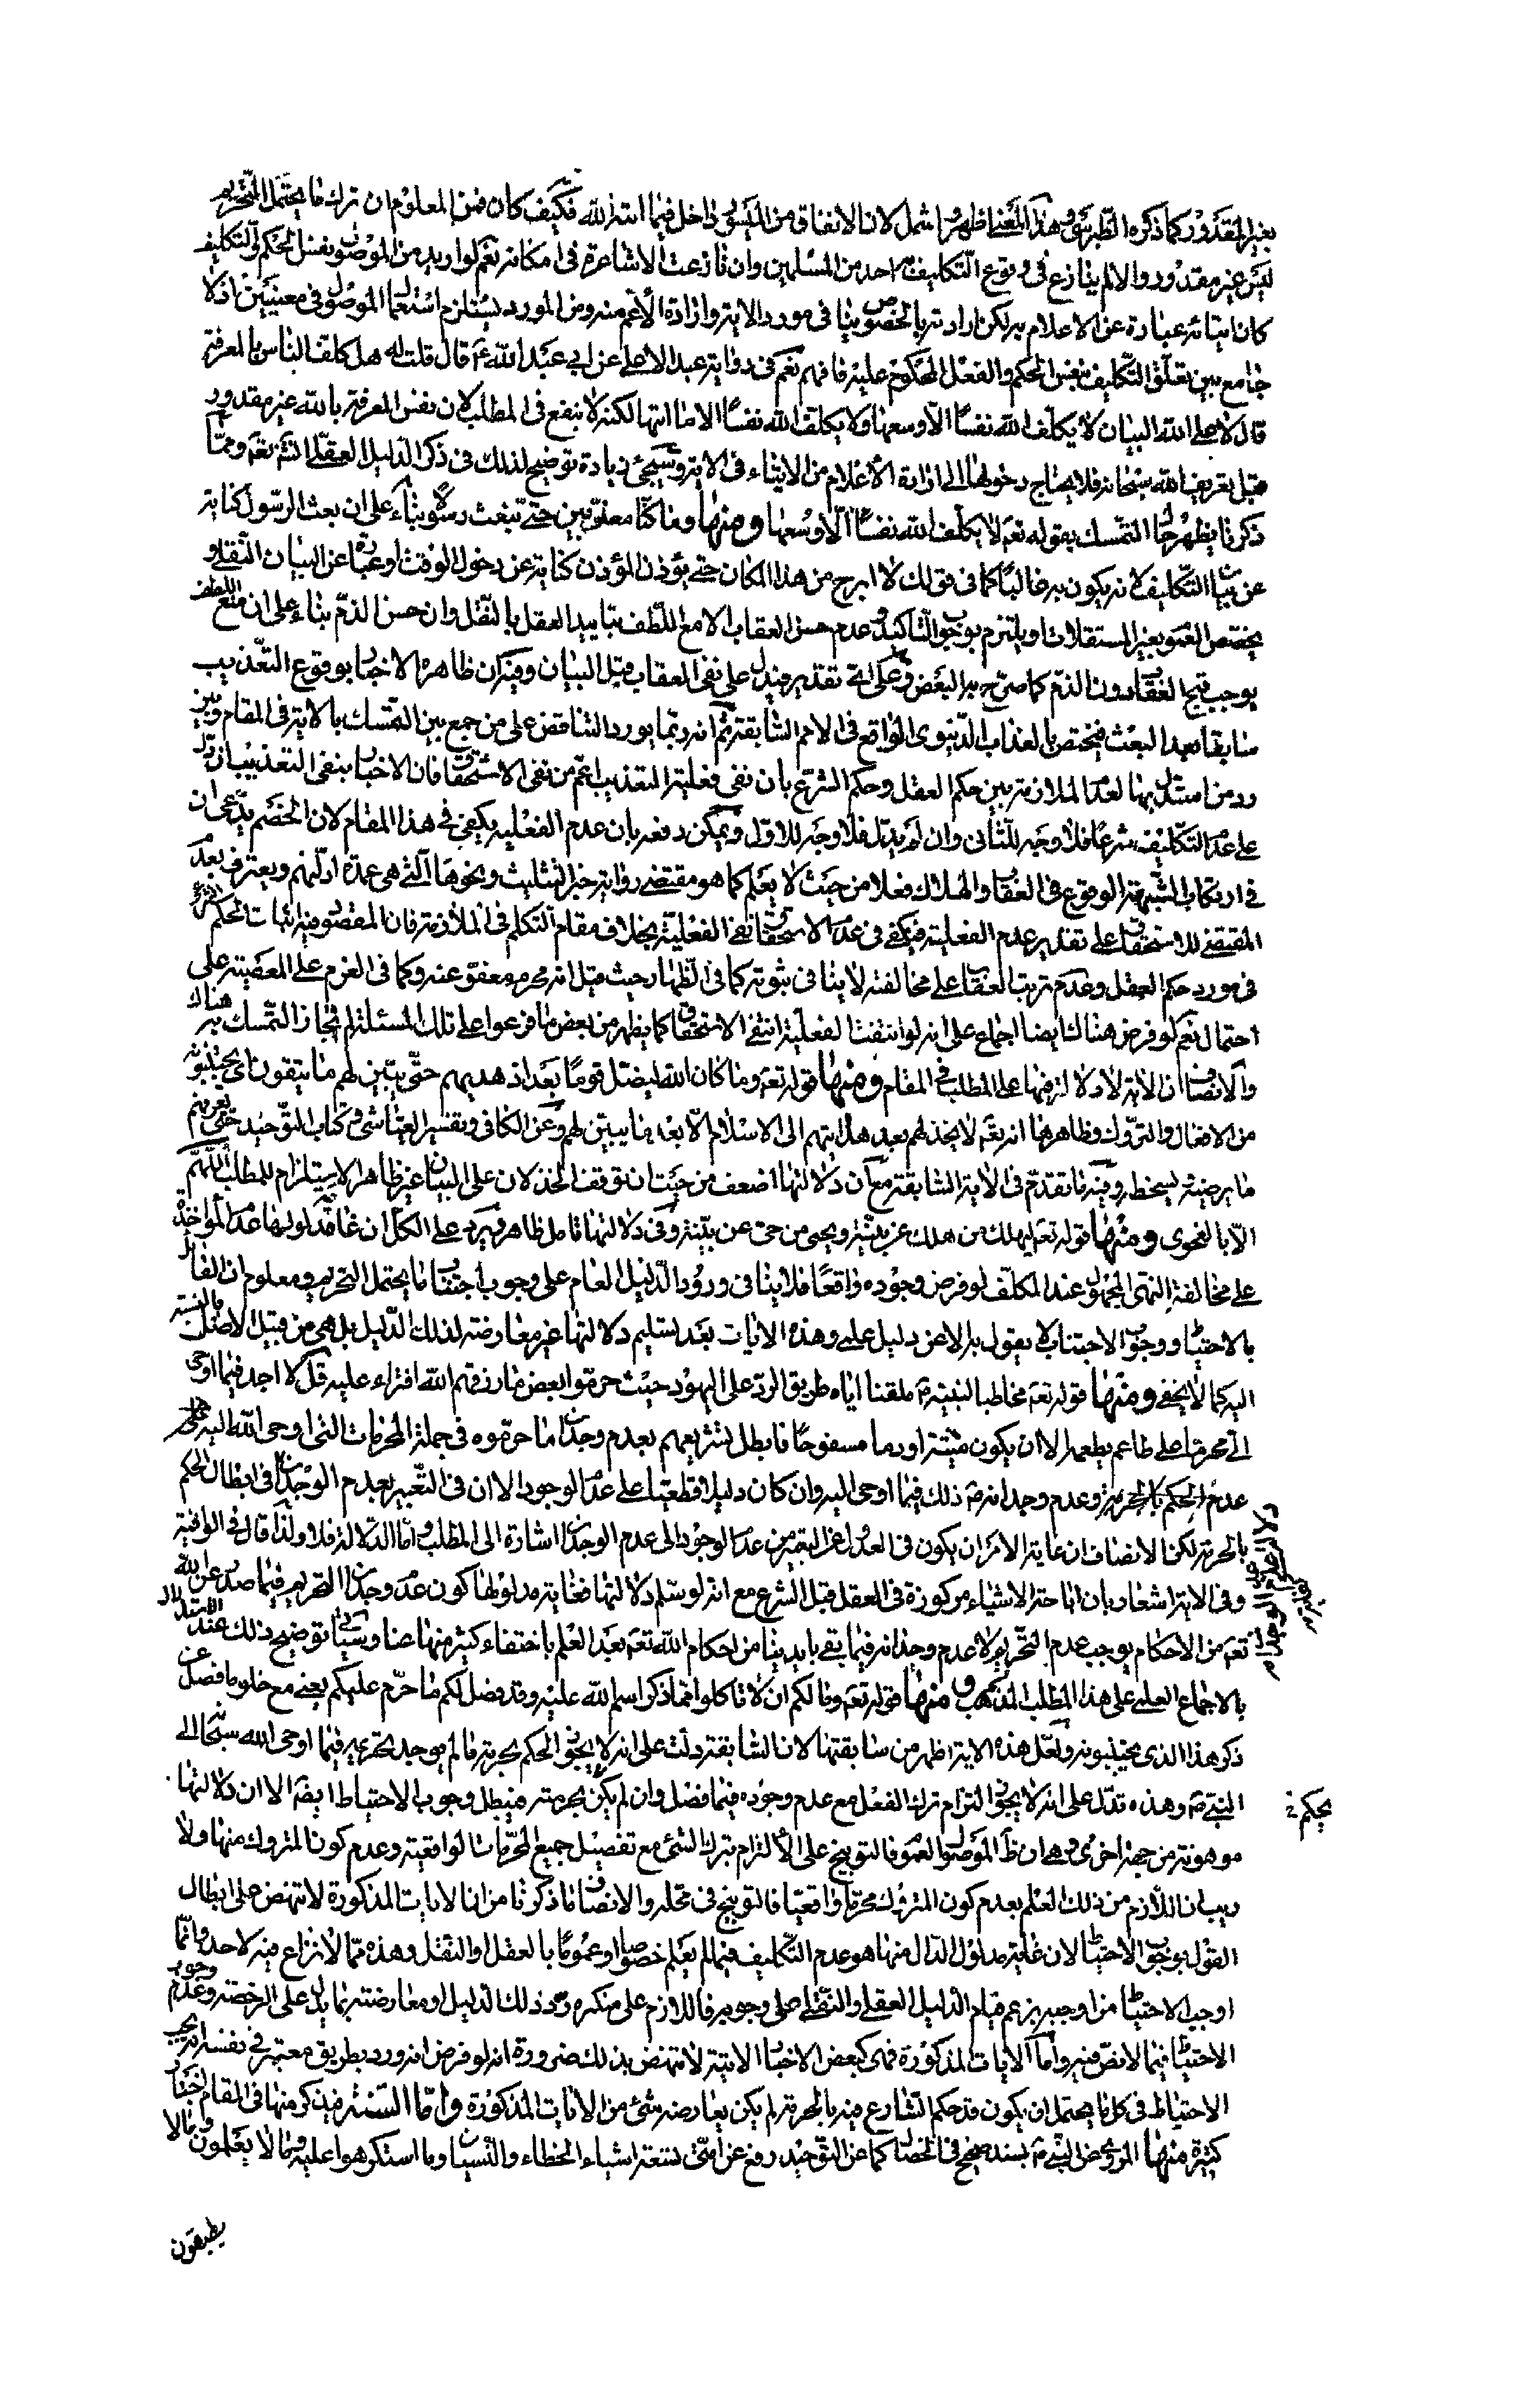 بغير المقدور كما ذكره الطبرسي وهذا المعنى اظهر واشمل لان الانفاق من الميسور داخل فيما اتيه الله فكيف كان فمن المعلوم ان ترك ما يحتمل التحريم
ليس غير مقدور والا لم ينازع في وقوع التكليف به احد من المسلمين وان نازعت الاشاعرة في امكانه نعم لو اريد من الموصول نفس الحكم والتكليف
كان ايتائه عبارة عن الاعلام به لكن ارادته بالخصوص ينافي مورد الاية وارادة الاعم منه ومن المورد يستلزم استعمال الموصول في معنيين اذ لا
جامع بين تعلق التكليف بنفس الحكم والفعل المحكوم عليه فافهم نعم في رواية عبد الاعلى عن ابي عبد الله ع قال قلت له هل كلف الناس بالمعرفة
قال لا على الله البيان لا يكلف الله نفسا الا وسعها ولا يكلف الله نفسا الا ما اتيها لكنه لا ينفع في المطلب لان نفس المعرفة بالله غير مقدور
قبل تعريف الله سبحانه فلا يحتاج دخولها الى ارادة الاعلام من الايتاء في الاية وسيجئ زيادة توضيح لذلك في ذكر الدليل العقلي انش تعه ومما
ذكرنا يظهر حال التمسك بقوله تعه لا يكلف الله نفسا الا وسعها ومنها وما كنا معذبين حتى نبعث رسولا بناء على ان بعث الرسول كناية
عن بيان التكليف لانه يكون به غالبا كما في قولك لا ابرح من هذا المكان حتى يؤذن المؤذن كناية عن دخول الوقت او عبارة عن البيان النقلي و
يختص العموم بغير المستقلات او يلتزم بوجوب التاكيد وعدم حسن العقاب الا مع اللطف بتاييد العقل بالنقل وان حسن الذم بناء على ان منع اللطف
يوجب قبح العقاب دون الذم كما صرح به البعض وعلى اي تقدير فيدل على نفي العقاب قبل البيان وفيه ان ظاهره الاخبار بوقوع التعذيب
سابقا بعد البعث فيختص بالعذاب الدنيوي الواقع في الامم السابقة ثم انه ربما يورد التناقض على من جمع بين التمسك بالاية في المقام وبين
رد من استدل بها لعدم الملازمة بين حكم العقل وحكم الشرع بان نفي فعلية التعذيب اعم من نفي الاستحقاق فان الاخبار بنفي التعذيب ان دل
على عدم التكليف شرعا فلا وجه للثاني وان لم يدل فلا وجه للاول ويمكن دفعه بان عدم الفعلية يكفي في هذا المقام لان الخصم يدعي ان
في ارتكاب الشبهة الوقوع في العقاب والهلاك فعلا من حيث لا يعلم كما هو مقتضى رواية خبر التثليث ونحوها التي هي عمدة ادلتهم ويعترف بعدم
المقتضي للاستحقاق على تقدير عدم الفعلية فيكفي في عدم الاستحقاق نفي الفعلية بخلاف مقام التكلم في الملازمة فان المقصود فيه اثبات الحكم الشرعي
في مورد حكم العقل وعدم ترتب العقاب على مخالفته لا ينافي ثبوته كما في الظهار حيث قيل انه محرم معفو عنه وكما في العزم على المعصية على
احتمال نعم لو فرض هناك ايضا اجماع على انه لو انتفت الفعلية انتفى الاستحقاق كما يظهر من بعض ما فرعوا على تلك المسئلة لجاز التمسك به هناك
والانصاف ان الاية لا دلالة فيها على المطلب في المقام ومنها قوله تعه وما كان الله ليضل قوما بعد اذ هديهم حتى يبين لهم ما يتقون اي ما يجتنبونه
من الافعال والتروك وظاهرها انه تعه لا يخذلهم بعد هدايتهم الى الاسلام الا بعد ما يبين لهم وعن الكافي وتفسير العياشي وكتاب التوحيد حتى يعرفهم
ما يرضيه وما يسخطه وفيه ما تقدم في الاية السابقة مع ان دلالتها اضعف من حيث ان توقف الخذلان على البيان غير ظاهر الاستلزام للمطلب اللهم
الا بالفحوى ومنها قوله تعه ليهلك من هلك عن بينة ويحيى من حي عن بينة وفي دلالتها تامل ظاهر ويرد على الكل ان غاية مدلولها عدم المؤاخذة
على مخالفة النهي المجهول عند المكلف لو فرض وجوده واقعا فلا ينافي ورود الدليل العام على وجوب اجتناب ما يحتمل التحريم ومعلوم ان القائل
بالاحتياط ووجوب الاجتناب لا يقول به الا عن دليل علمي وهذه الايات بعد تسليم دلالتها غير معارضة لذلك الدليل بل هي من قبيل الاصل بالنسبة
اليه كما لا يخفى ومنها قوله تعه مخاطبا لنبيه ص ملقنا اياه طريق الرد على اليهود حيث حرموا بعض ما رزقهم الله افتراء عليه قل لا اجد فيما اوحى
الي محرما على طاعم يطعمه الا ان يكون ميتة او دما مسفوحا فابطل تشريعهم بعدم وجدان ما حرموه في جملة المحرمات التي اوحى الله اليه
عدم الحكم بالحرمة وعدم وجدانه ص ذلك فيما اوحى اليه وان كان دليلا قطعيا على عدم الوجود الا ان في التعبير بعدم الوجدان في ابطال الحكم
بالحرمة لكن الانصاف ان غاية الامر ان يكون في العدول عن التعبير من عدم الوجود الى عدم الوجدان اشارة الى المطلب واما الدلالة فلا ولذا قال في الوافية
وفي الاية اشعار بان اباحة الاشياء مركوزة في العقل قبل الشرع مع انه لو سلم دلالتها فغاية مدلولها كون عدم وجدان التحريم فيما صدر عن الله
تعه من الاحكام يوجب عدم التحريم لا عدم وجدانه فيما بقي بايدينا من احكام الله تعه بعد العلم باختفاء كثير منها عنا وسياتي توضيح ذلك عند الاستدلال
بالاجماع العملي على هذا المطلب ومنها قوله تعه وما لكم ان لا تاكلوا مما ذكر اسم الله عليه وقد فصل لكم ما حرم عليكم يعني مع خلو ما فصل عن
ذكر هذا الذي يجتنبونه ولعل هذه الاية اظهر من سابقتها لان السابقة دلت على انه لا يجوز الحكم بحرمة ما لم يوجد تحريمه فيما اوحى الله سبحانه الى
النبي ص وهذه تدل على انه لا يجوز التزام ترك الفعل مع عدم وجوده فيما فصل وان لم يكن بحرمته فيبطل وجوب الاحتياط ايضه الا ان دلالتها
يحكم
موهونة من جهة اخرى وهي ان ظ الموصول العموم فالتوبيخ على الالتزام بترك الشئ مع تفصيل جميع المحرمات الواقعية وعدم كون المتروك منها ولا
ريب ان اللازم من ذلك العلم بعدم كون المتروك محرما واقعيا فالتوبيخ في محله والانصاف ما ذكرنا من ان الايات المذكورة لا تنهض على ابطال
القول بوجوب الاحتياط لان غاية مدلول الدال منها هو عدم التكليف فيما لم يعلم خصوصا او عموما بالعقل او النقل وهذه مما لا نزاع فيه لاحد وانما
اوجب الاحتياط من اوجبه بزعم قيام الدليل العقلي والنقلي على وجوبه فاللازم على منكره رد ذلك الدليل ومعارضته بما يدل على الرخصة وعدم وجوب
الاحتياط فيما لا نص فيه واما الايات المذكورة فهي كبعض الاخبار الاتية لا تنهض بذلك ضرورة انه لو فرض انه ورد بطريق معتبر في نفسه انه يجب
الاحتياط في كل ما يحتمل ان يكون قد حكم الشارع فيه بالحرمة لم يكن يعارضه شئ من الايات المذكورة واما السنة فيذكر منها في المقام اخبار
كثيرة منها المروي عن النبي ص بسند صحيح في الخصال كما عن التوحيد رفع عن امتي تسعة اشياء الخطاء والنسيان وما استكرهوا عليه وما لا يعلمون وما لا
يطيقون